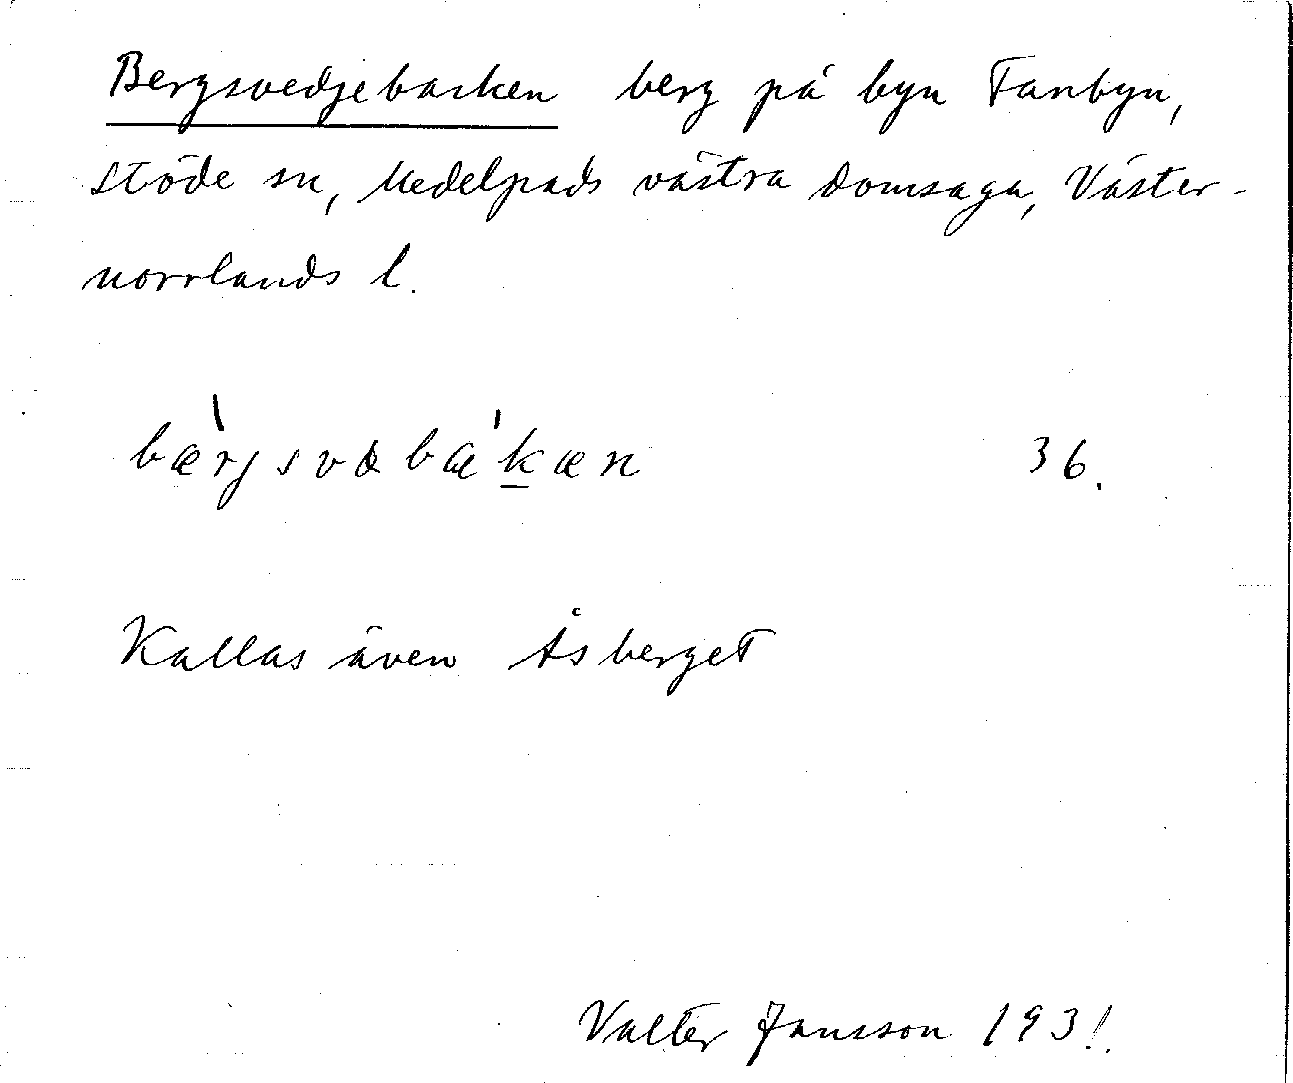 Bergsvedjebacken berg på byn Fanbyn,
Stöde sn, Medelpads västra domsaga, Väster-
norrlands l.
36.
Kallas även Åsberget
Valter Jansson 1931.